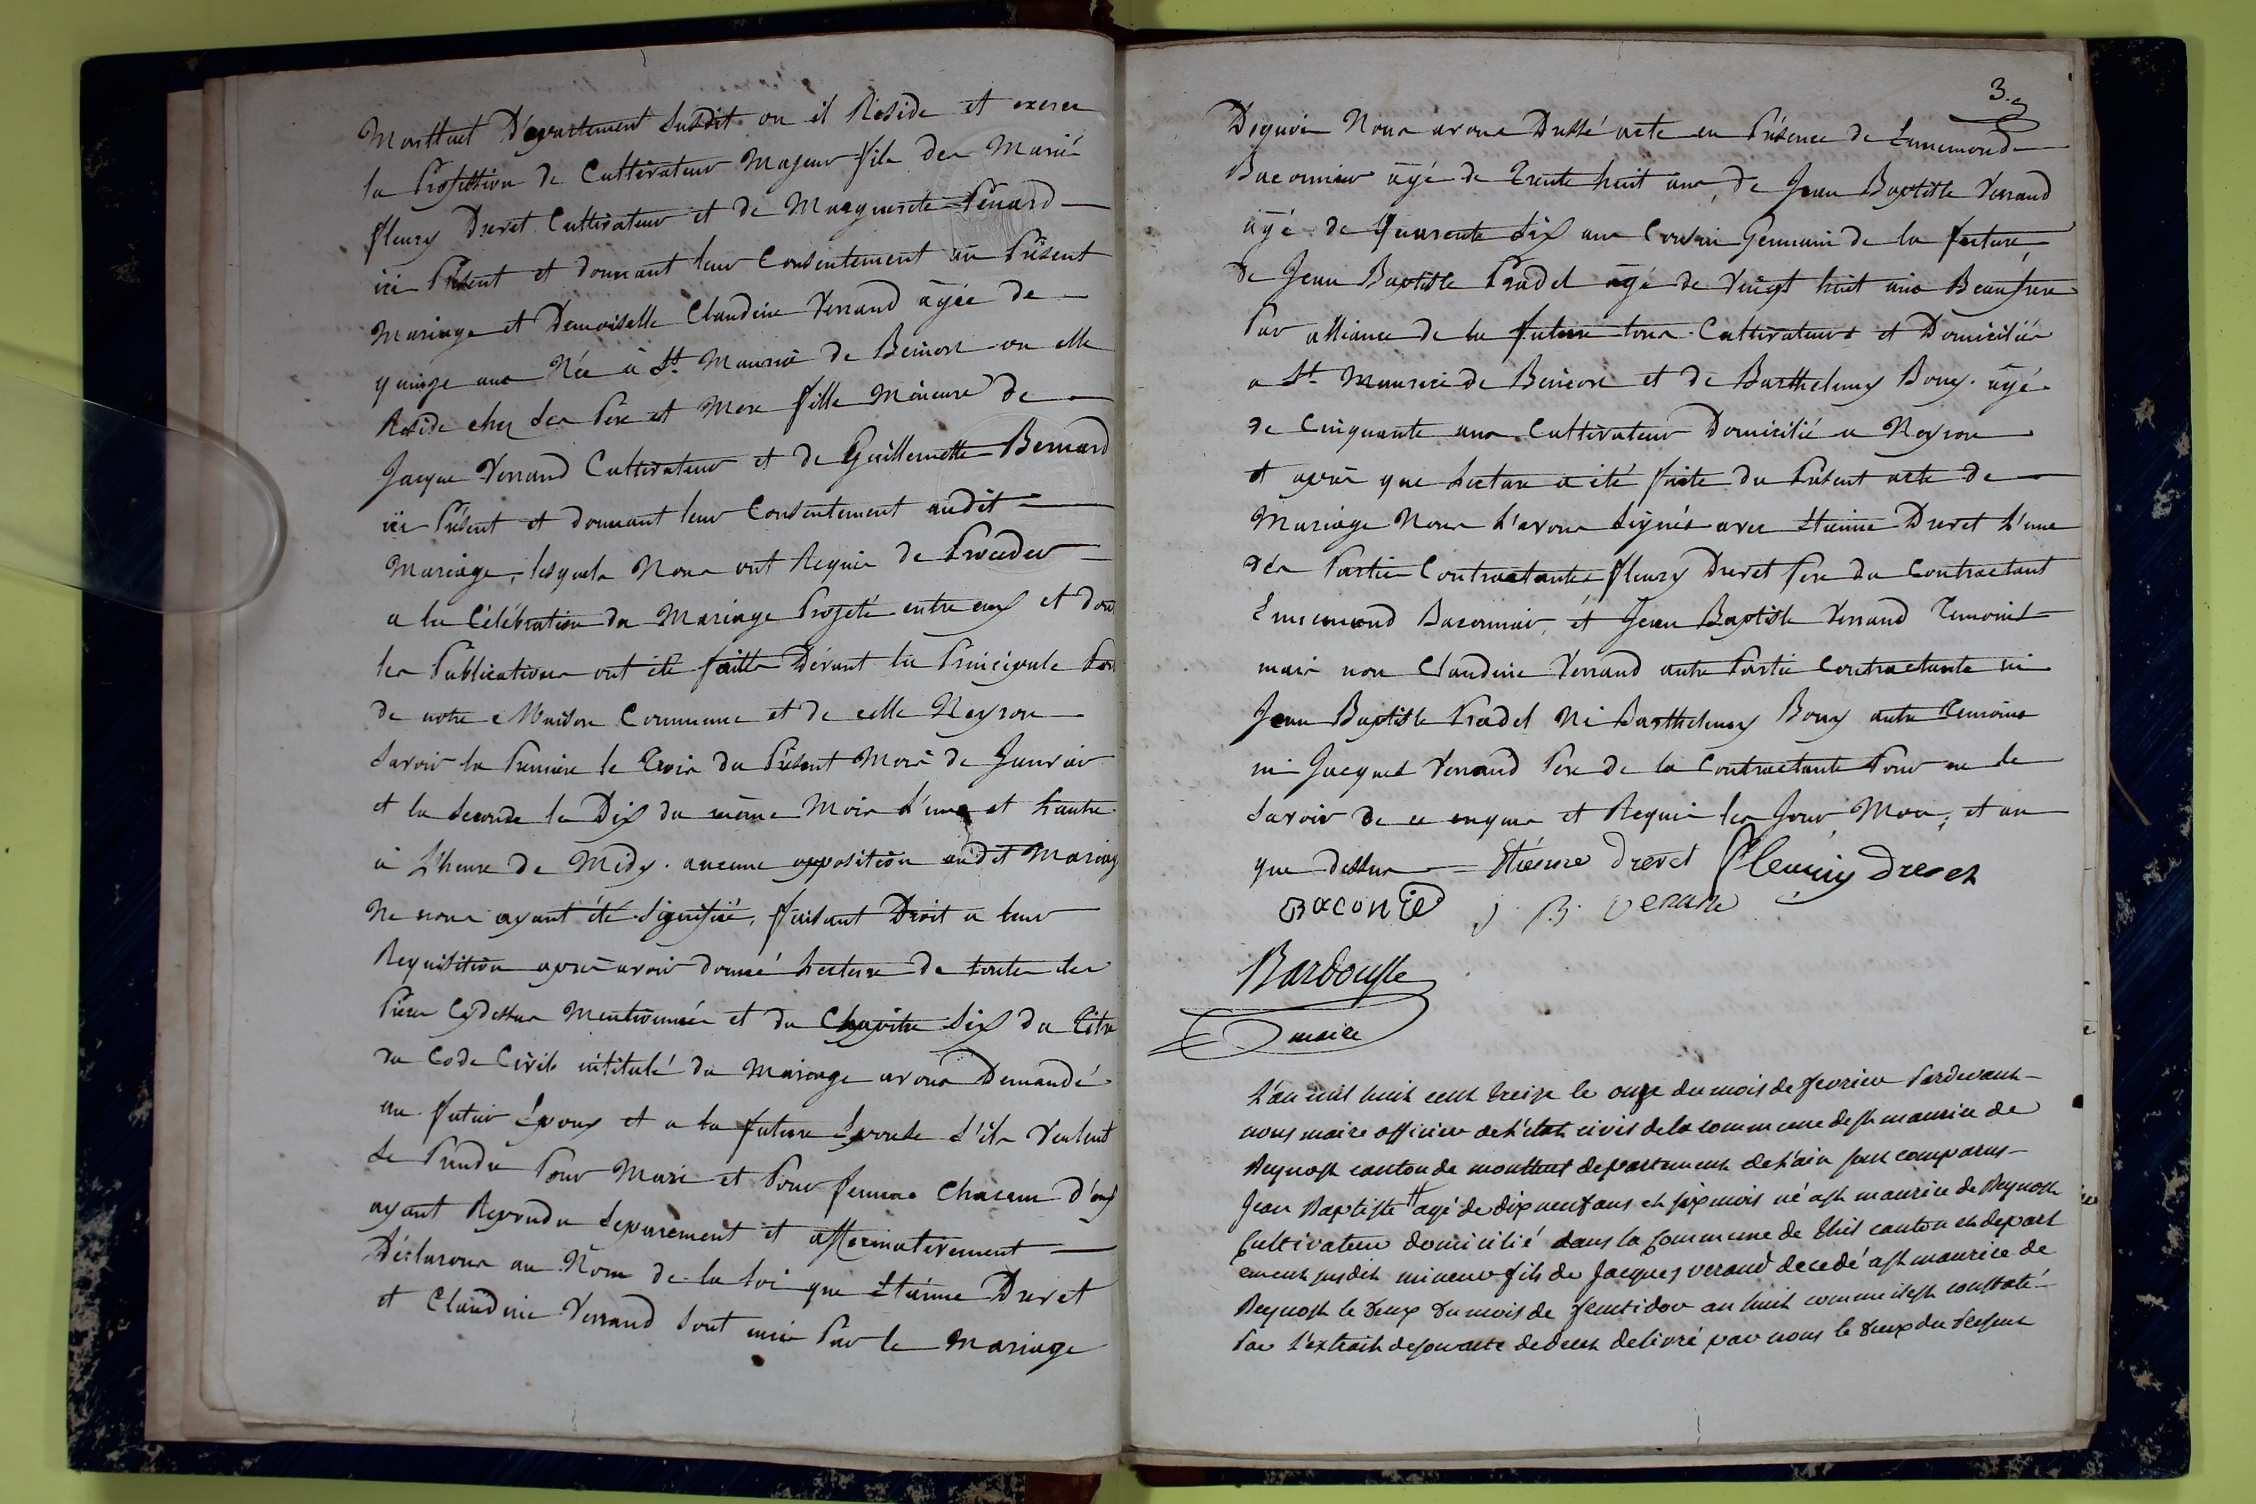 Monttuel Département Susdit ou il Reside et exerce
la Profession de Cultivateur Majeur fils des Mariés
fleury Drevet Cultivateur et de Marguerite Pénard
ici Présent et donnant leur Consentement au Présent
Mariage et Demoiselle Claudine Verrand agée de
quinze ans Née à St. Maurice de Beinost ou elle
Reside chez Ses Pere et Mere fille Mineure de
Jacque Verrand Cultivateur et de Guillemette Bernard
ici Présent et donnant leur Consentement audit
Mariage, lesquels Nous ont Requis de Proceder
a la Célébration du Mariage Projeté entre eux et dont
les Publications ont été faittes Dévant la Principale
de notre Maison Commune et de celle Neyron
Savoir la Premiere le Trois du Présent Mois de Janvier
et la Seconde le Dix du même Mois l'une et l'autre
à L'heure de Midy. aucune opposition audit Mariage
Ne nous ayant été Signifiée, faisant Droit a leur
Requisition apres avoir donné Lecture de toutes les
Pieces Cydessus Mentionnées et du Chapitre Six du Titre
du Code Civile intitulé du Mariage avons Demandé
au futur Epoux et a la future Epouse S'ils Veulent
Se Prendre Pour Mari et Pour femme Chacun d'eux
ayant Repondu Séparement et affirmativement
Déclarons au Nom de la Loi que Etienne Drevet
et Claudine Verrand Sont unis Par le Mariage
3.
Dequoi Nous avons Dressé acte en Présence de Ennemond
Baconnier âgé de Trente huit ans, de Jean Baptiste Verrand
âgé de Quarente Six ans Cousin Germain de la future
de Jean Baptiste Pradel agé de Vingt huit ans Beaufrere
Par alliance de la future tous Cultivateurs et Domiciliés
a St. Maurice de Beinost et de Barthelemy Bouy âgé
de Cinquante ans Cultivateur Domicilié a Neyron
et après que Lecture a été faite du Présent acte de
Mariage Nous L'avons Signés avec Etienne Drevet L'une
des Parties Contractantes fleury Drevet Pere du Contractant
Ennemond Baconnier, et Jean Baptiste Verrand Temoins
mais non Claudine Verrand autre Partie Contractante ni
Jean Baptiste Pradel Ni Barthelemy Bouy autre Temoins
ni Jacques Verrand Pere de la Contractante Pour ne le
Savoir de ce enquis et Requis les Jour Mois, et an
que dessus Etienne drevet fleuriy drevet
Baconié J B verand
Bardousse
maire
L'an mil huit cent treize le onze du mois de fevrier Pardevant
nous maire officier de L'état civil de la commune de st maurice de
Beynost canton de monttuel departement de L'ain sont comparus
Jean Baptiste # agé de dix neuf ans et six mois né a st maurice de Beynost
Cultivateur domicilié dans la Commune de Thil canton et depart
ement susdit mineur fils de Jacques verand decedé a st maurice de
Beynost le deux du mois de fructidor an huit comme il est constaté
Par L'extrait de son acte de deces delivré par nous le deux du present